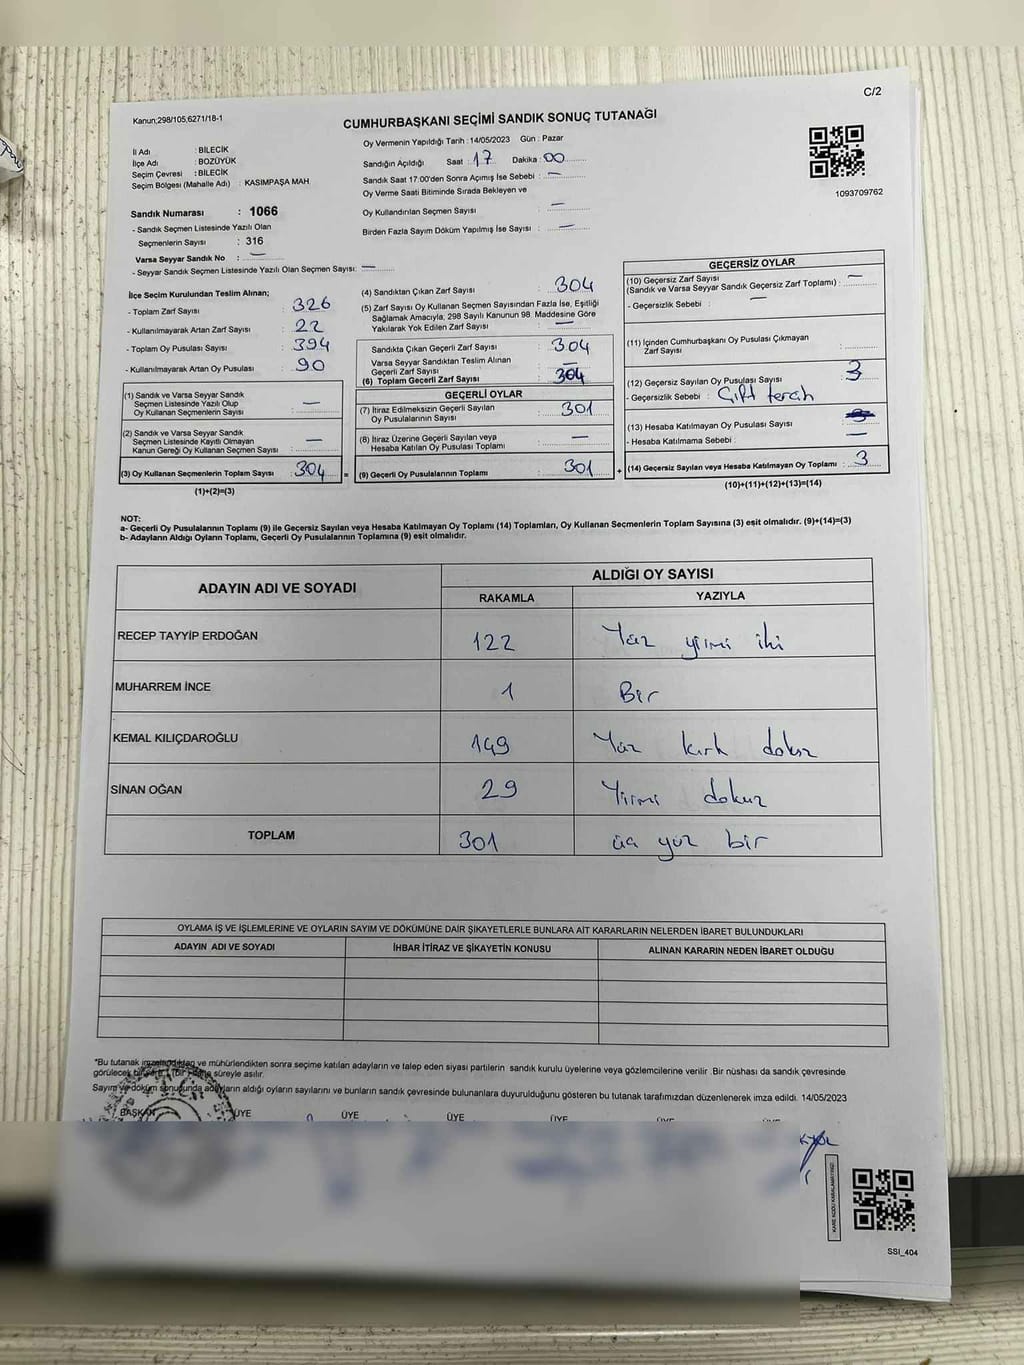 C/2
Kanun;298/105,6271/18-1
CUMHURBAŞKANI SEÇİMİ SANDIK SONUÇ TUTANAĞI
İl Adı : BİLECİK
İlçe Adı : BOZÜYÜK
Seçim Çevresi : BİLECİK
Seçim Bölgesi (Mahalle Adı) : KASIMPAŞA MAH
Sandık Numarası : 1066
- Sandık Seçmen Listesinde Yazılı Olan
Seçmenlerin Sayısı : 316
Varsa Seyyar Sandık No : —
- Seyyar Sandık Seçmen Listesinde Yazılı Olan Seçmen Sayısı: —
Oy Vermenin Yapıldığı Tarih : 14/05/2023 Gün : Pazar
Sandığın Açıldığı Saat : 17 Dakika : 00
Sandık Saat 17:00'den Sonra Açımış İse Sebebi : —
Oy Verme Saati Bitiminde Sırada Bekleyen ve
Oy Kullandırılan Seçmen Sayısı : —
Birden Fazla Sayım Döküm Yapılmış İse Sayısı : —
1093709762
İlçe Seçim Kurulundan Teslim Alınan;
- Toplam Zarf Sayısı : 326
- Kullanılmayarak Artan Zarf Sayısı : 22
- Toplam Oy Pusulası Sayısı : 394
- Kullanılmayarak Artan Oy Pusulası : 90
(1) Sandık ve Varsa Seyyar Sandık
Seçmen Listesinde Yazılı Olup
Oy Kullanan Seçmenlerin Sayısı : —
(2) Sandık ve Varsa Seyyar Sandık
Seçmen Listesinde Kayıtlı Olmayan
Kanun Gereği Oy Kullanan Seçmen Sayısı : —
(3) Oy Kullanan Seçmenlerin Toplam Sayısı : 304 =
(1)+(2)=(3)
(4) Sandıktan Çıkan Zarf Sayısı : 304
(5) Zarf Sayısı Oy Kullanan Seçmen Sayısından Fazla İse, Eşitliği
Sağlamak Amacıyla, 298 Sayılı Kanunun 98. Maddesine Göre
Yakılarak Yok Edilen Zarf Sayısı : —
Sandıkta Çıkan Geçerli Zarf Sayısı : 304
Varsa Seyyar Sandıktan Teslim Alınan
Geçerli Zarf Sayısı : —
(6) Toplam Geçerli Zarf Sayısı : 304
GEÇERLİ OYLAR
(7) İtiraz Edilmeksizin Geçerli Sayılan
Oy Pusulalarının Sayısı : 301
(8) İtiraz Üzerine Geçerli Sayılan veya
Hesaba Katılan Oy Pusulası Toplamı : —
(9) Geçerli Oy Pusulalarının Toplamı : 301 +
GEÇERSİZ OYLAR
(10) Geçersiz Zarf Sayısı
(Sandık ve Varsa Seyyar Sandık Geçersiz Zarf Toplamı) : —
- Geçersizlik Sebebi : —
(11) İçinden Cumhurbaşkanı Oy Pusulası Çıkmayan
Zarf Sayısı :
(12) Geçersiz Sayılan Oy Pusulası Sayısı : 3
- Geçersizlik Sebebi : Çift tercih
(13) Hesaba Katılmayan Oy Pusulası Sayısı :
- Hesaba Katılmama Sebebi : —
(14) Geçersiz Sayılan veya Hesaba Katılmayan Oy Toplamı : 3
(10)+(11)+(12)+(13)=(14)
NOT:
a- Geçerli Oy Pusulalarının Toplamı (9) ile Geçersiz Sayılan veya Hesaba Katılmayan Oy Toplamı (14) Toplamları, Oy Kullanan Seçmenlerin Toplam Sayısına (3) eşit olmalıdır. (9)+(14)=(3)
b- Adayların Aldığı Oyların Toplamı, Geçerli Oy Pusulalarının Toplamına (9) eşit olmalıdır.
ADAYIN ADI VE SOYADI
ALDIĞI OY SAYISI
RAKAMLA YAZIYLA
RECEP TAYYİP ERDOĞAN 122 Yüz yirmi iki
MUHARREM İNCE 1 Bir
KEMAL KILIÇDAROĞLU 149 Yüz kırk dokuz
SİNAN OĞAN 29 Yirmi dokuz
TOPLAM 301 üç yüz bir
OYLAMA İŞ VE İŞLEMLERİNE VE OYLARIN SAYIM VE DÖKÜMÜNE DAİR ŞİKAYETLERLE BUNLARA AİT KARARLARIN NELERDEN İBARET BULUNDUKLARI
ADAYIN ADI VE SOYADI İHBAR İTİRAZ VE ŞİKAYETİN KONUSU ALINAN KARARIN NEDEN İBARET OLDUĞU
*Bu tutanak imzalandıktan ve mühürlendikten sonra seçime katılan adayların ve talep eden siyasi partilerin sandık kurulu üyelerine veya gözlemcilerine verilir .Bir nüshası da sandık çevresinde
görülecek bir yere 1 (bir) hafta süreyle asılır.
Sayım ve döküm sonucunda adayların aldığı oyların sayılarını ve bunların sandık çevresinde bulunanlara duyurulduğunu gösteren bu tutanak tarafımızdan düzenlenerek imza edildi. 14/05/2023
BAŞKAN ÜYE ÜYE ÜYE ÜYE
SSİ_404